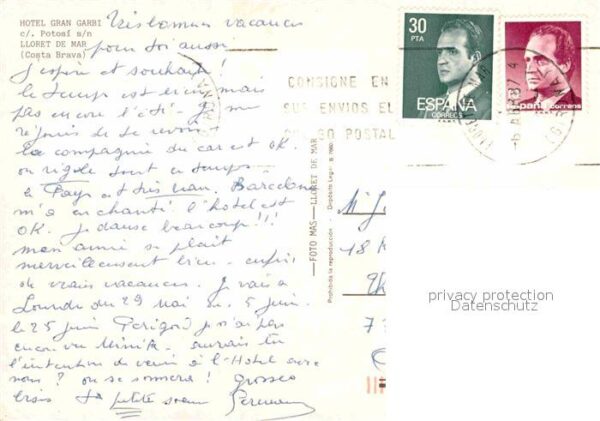 HOTEL GRAN GARBI
c/. Potosí s/n
LLORET DE MAR
(Costa Brava)
bonnes vacances
pour toi aussi
J'espère et souhaite !
le temps est bien mais
pas encore l'été. Je me
réjouis de te revoir
la compagnie du car est OK.
on rigole tout le temps
le Pays est très beau. Barcelone
m'a enchanté l'hôtel est
OK. Je danse beaucoup !!!
mon amie se plait
merveilleusement bien - enfin
de vraies vacances. Je vais à
Lourdes du 29 Mai au 5 juin
le 25 juin Périgord je n'ai pas
encore vu - aurais tu
l'intention de venir à l'Hotel avec
nous ? on se sonnera ! grosses
bises ta petite soeur
30
PTA
ESPAÑA
CORREOS
españa correos
CONSIGNE EN
SUS ENVIOS EL
CODIGO POSTAL
FOTO MAS - LLORET DE MAR
Prohibida la reproducción
Depósito Legal
18
privacy protection
Datenschutz